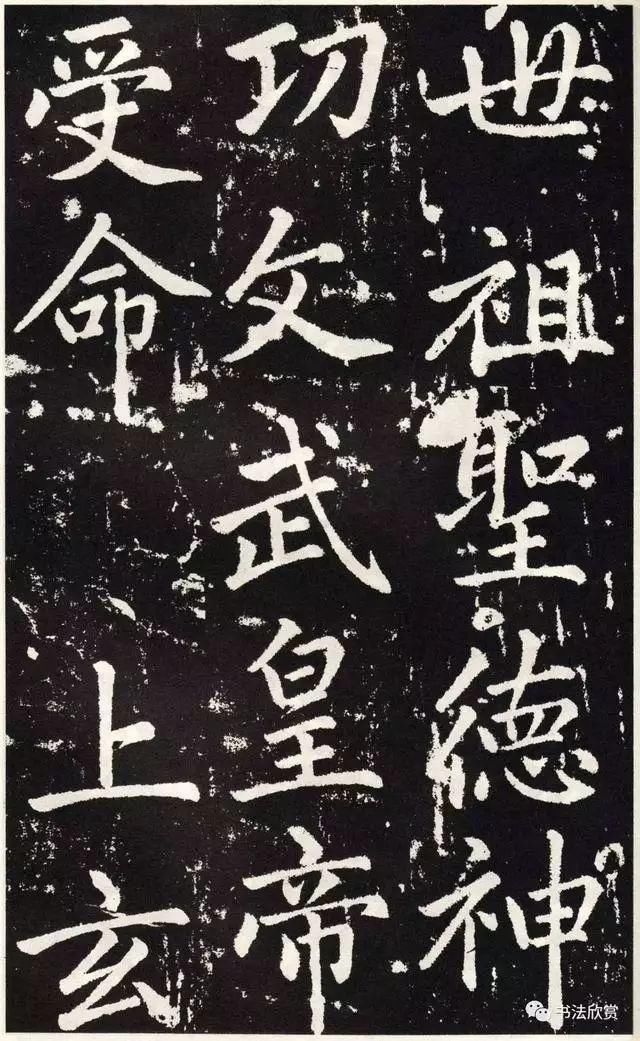 世祖聖德神
功文武皇帝
受命上玄
书法欣赏